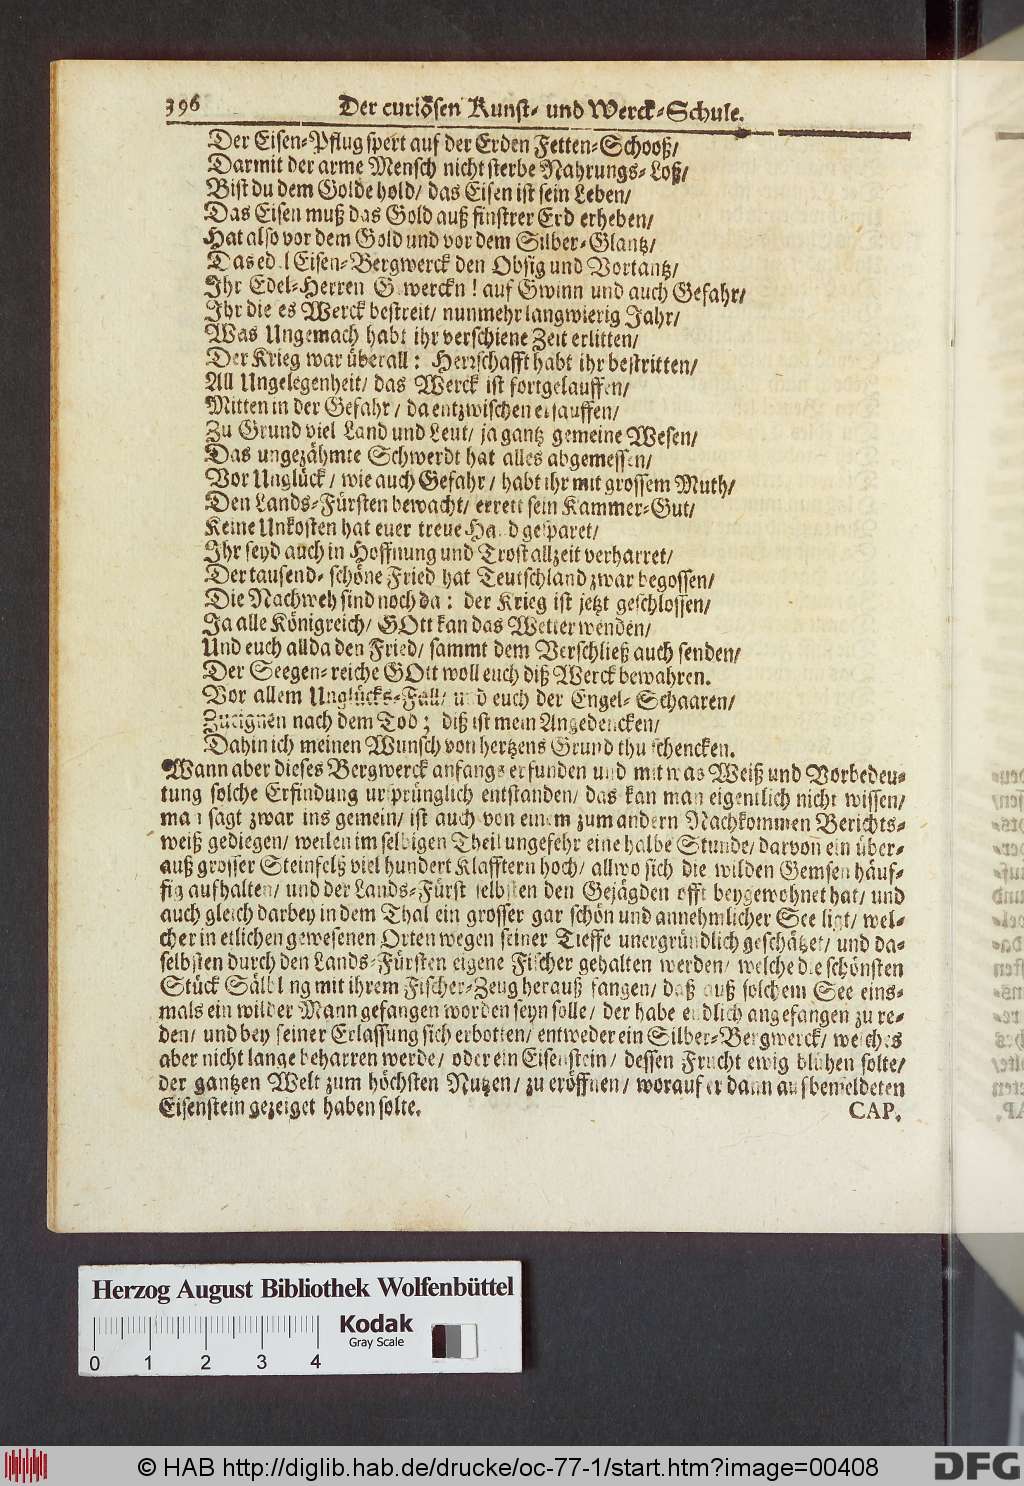 396 Der curiösen Kunst- und Werck-Schule.
Der Eisen-Pflug spert auf der Erden Fetten-Schooß/
Darmit der arme Mensch nicht sterbe Nahrungs-Loß/
Bist du dem Golde hold/ das Eisen ist sein Leben/
Das Eisen muß das Gold auß finstrer Erd erheben/
Hat also vor dem Gold und vor dem Silber-Glantz/
Das ed l Eisen-Bergwerck den Obsig und Vortantz/
Ihr Edel-Herren G wercken! auf Gwinn und auch Gefahr/
Ihr die es Werck bestreit/ nunmehr langwierig Jahr/
Was Ungemach habt ihr verschiene Zeit erlitten/
Der Krieg war überall: Herrschafft habt ihr bestritten/
All Ungelegenheit/ das Werck ist fortgelauffen/
Mitten in der Gefahr/ da entzwischen ersauffen/
Zu Grund viel Land und Leut/ ja gantz gemeine Wesen/
Das ungezähmte Schwerdt hat alles abgemessen/
Vor Unglück/ wie auch Gefahr/ habt ihr mit grossem Muth/
Den Lands-Fürsten bewacht/ errett sein Kammer-Gut/
Keine Unkosten hat euer treue Ha d gesparet/
Ihr seyd auch in Hoffnung und Trost allzeit verharret/
Der tausend-schöne Fried hat Teutschland zwar begossen/
Die Nachweh sind noch da: der Krieg ist jetzt geschlossen/
Ja alle Königreich/ GOtt kan das Wetter wenden/
Und euch allda den Fried/ sammt dem Verschließ auch senden/
Der Seegen-reiche GOtt woll euch diß Werck bewahren.
Vor allem Unglücks-Fall/ und euch der Engel-Schaaren/
Zueignen nach dem Tod; diß ist mein Angedencken/
Dahin ich meinen Wunsch von hertzens Grund thu schencken.
Wann aber dieses Bergwerck anfangs erfunden und mit was Weiß und Vorbedeu-
tung solche Erfindung ursprünglich entstanden/ das kan man eigentlich nicht wissen/
man sagt zwar ins gemein/ ist auch von einem zum andern Nachkommen Berichts-
weiß gediegen/ weilen im selbigen Theil ungefehr eine halbe Stunde/ darvon ein über-
auß grosser Steinfelß viel hundert Klafftern hoch/ allwo sich die wilden Gemsen häuf-
fig aufhalten/ und der Lands-Fürst selbsten den Gejägden offt beygewohnet hat/ und
auch gleich darbey in dem Thal ein grosser gar schön und annehmlicher See ligt/ wel-
cher in etlichen gewesenen Orten wegen seiner Tieffe unergründlich geschätzet/ und da-
selbsten durch den Lands-Fürsten eigene Fischer gehalten werden/ welche die schönsten
Stück Sälbl ng mit ihrem Fischer-Zeug herauß fangen/ daß auß solchem See eins-
mals ein wilder Mann gefangen worden seyn solle/ der habe endlich angefangen zu re-
den/ und bey seiner Erlassung sich erbotten/ entweder ein Silber-Bergwerck/ welches
aber nicht lange beharren werde/ oder ein Eisenstein/ dessen Frucht ewig blühen solte/
der gantzen Welt zum höchsten Nutzen/ zu eröffnen/ worauf er dann aufbemeldeten
Eisenstein gezeiget haben solte. CAP.
Herzog August Bibliothek Wolfenbüttel
Kodak
Gray Scale
0 1 2 3 4
© HAB http://diglib.hab.de/drucke/oc-77-1/start.htm?image=00408
DFG